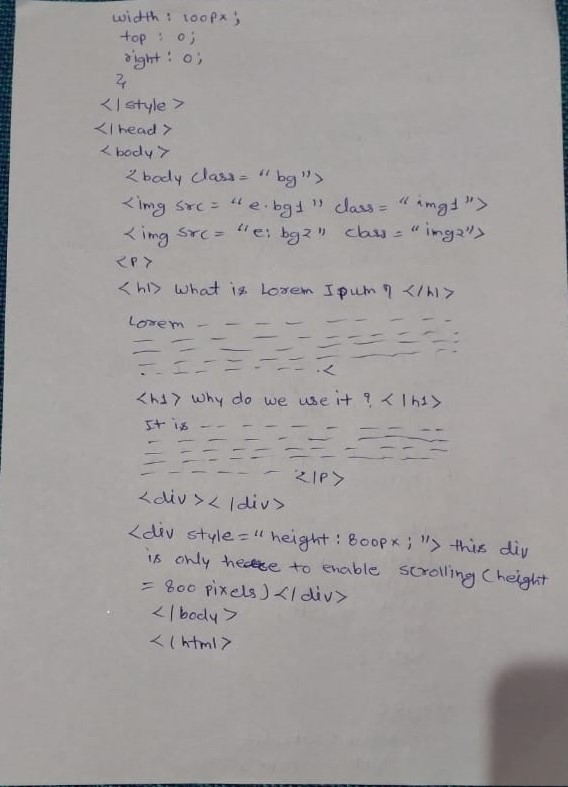 width : 100px ;
top : 0 ;
right : 0 ;
}
</style >
</head >
<body >
<body class = "bg">
<img src = "e.bg1" class = "img1">
<img src = "e: bg2" class = "img2">
<P>
<h1> what is Lorem Ipum ? </h1>
Lorem
<h1> why do we use it ? </h1>
It is
</P>
<div></div>
<div style = "height : 800px ; "> this div
is only here to enable scrolling (height
= 800 pixels) </div>
</body>
</html>